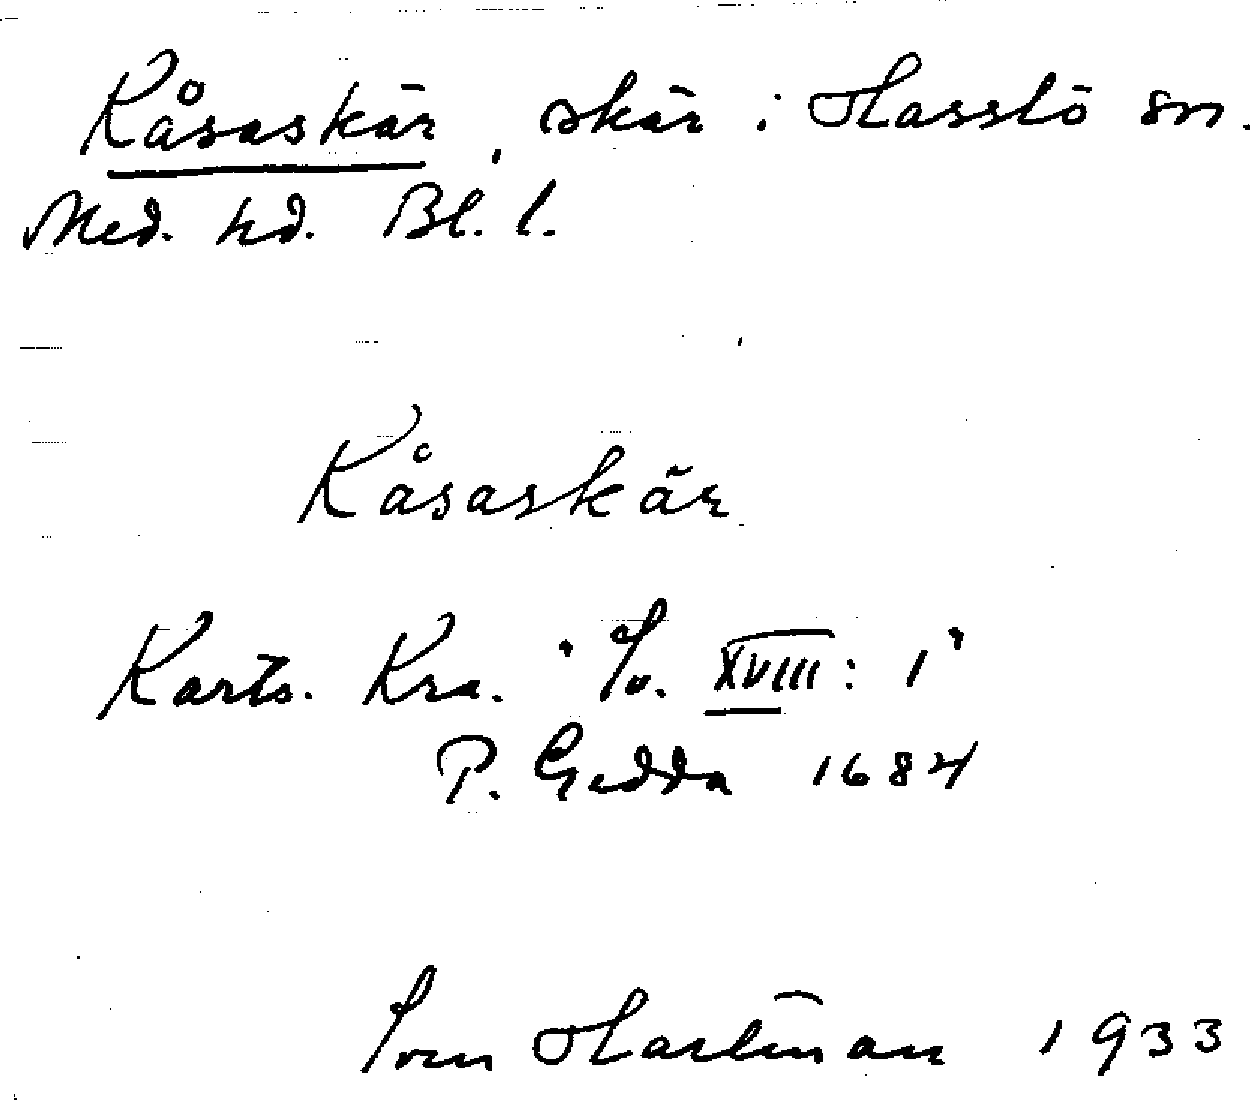 Kåsaskär, skär i Hasslö sn.
Med. hd. Bl. l.
Kåsaskär
Karts. Kra. "Sv. XVIII: 1"
P. Gedda 1684
Sven Hartman 1933